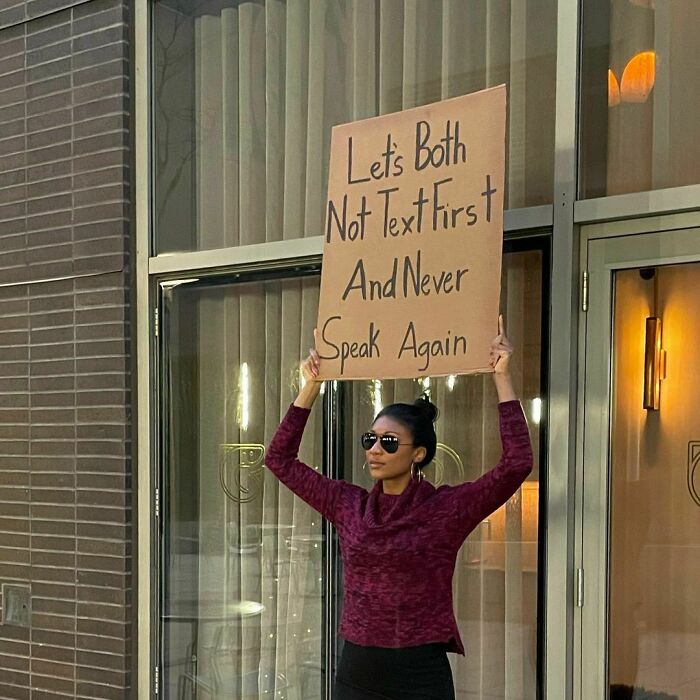 Let's Both
Not Text First
And Never
Speak Again